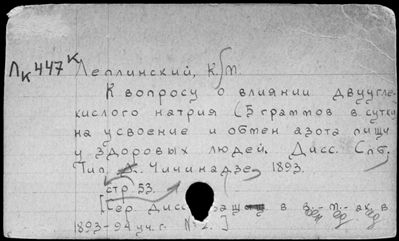 Лк 447 к Чеплинский, К. М.
К вопросу о влиянии двуугле-
кислого натрия (5 граммов в сутки
на усвоение и обмен азота пищи
у здоровых людей. Дисс. Спб.
Тип. А. Чичинадзе, 1893.
стр. 53.
[Сер. Дисс. в
1893-94 уч. г. № 2.]